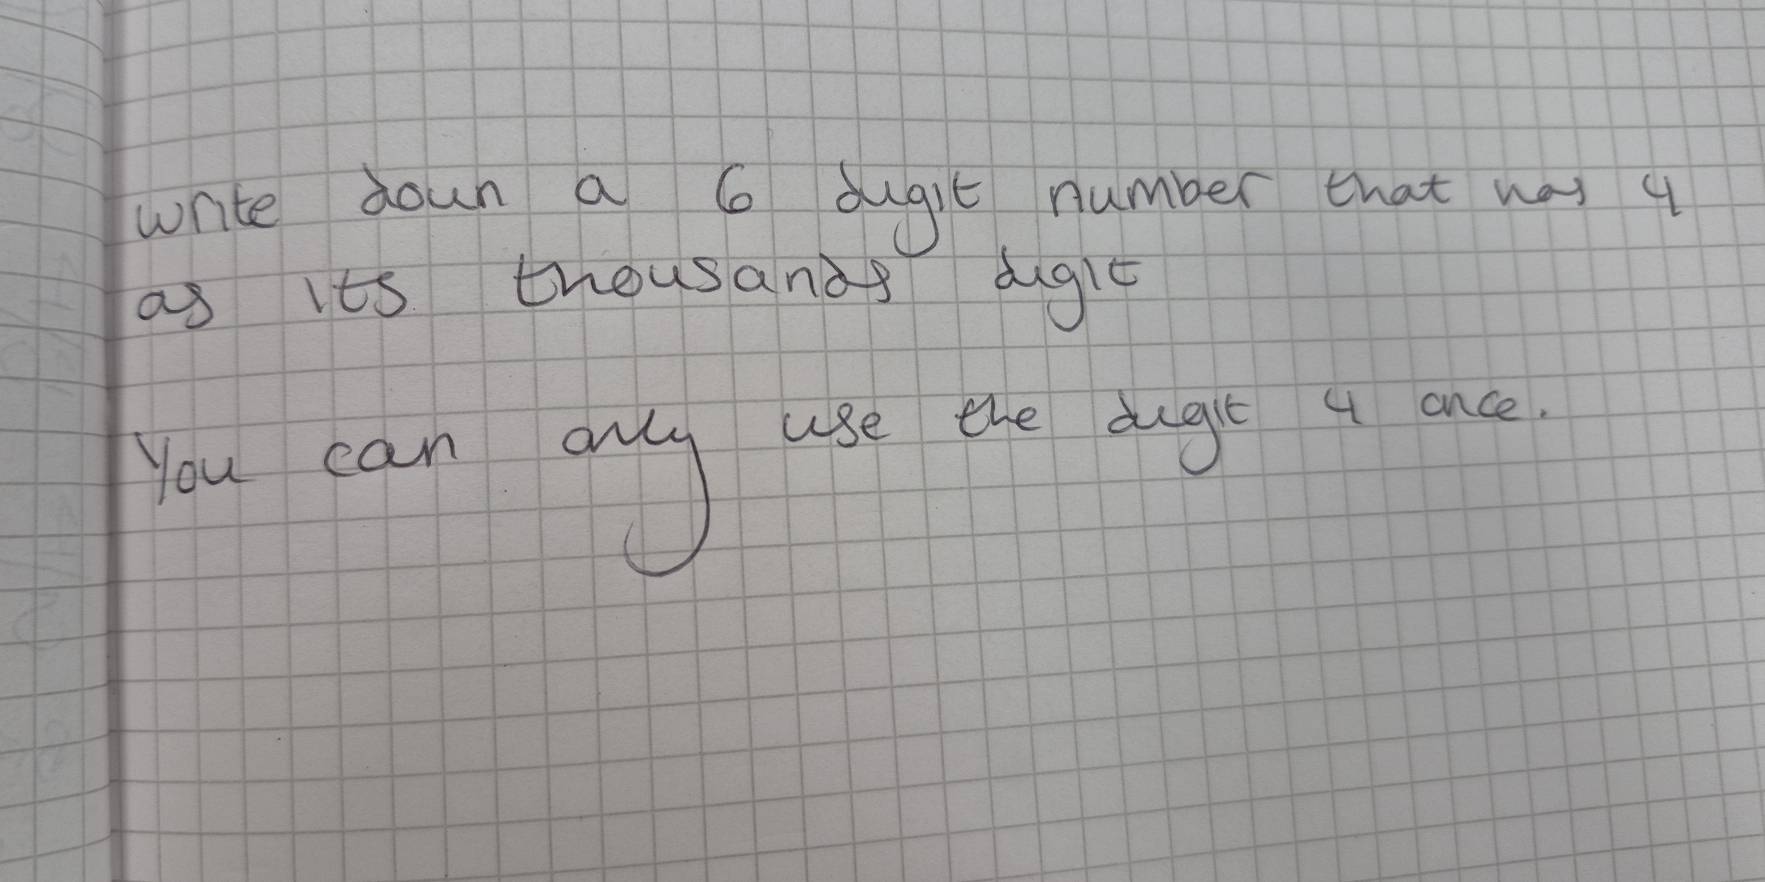 write down a 6 digit number that has 4
as its thousands digit
You can only use the digit 4 once.